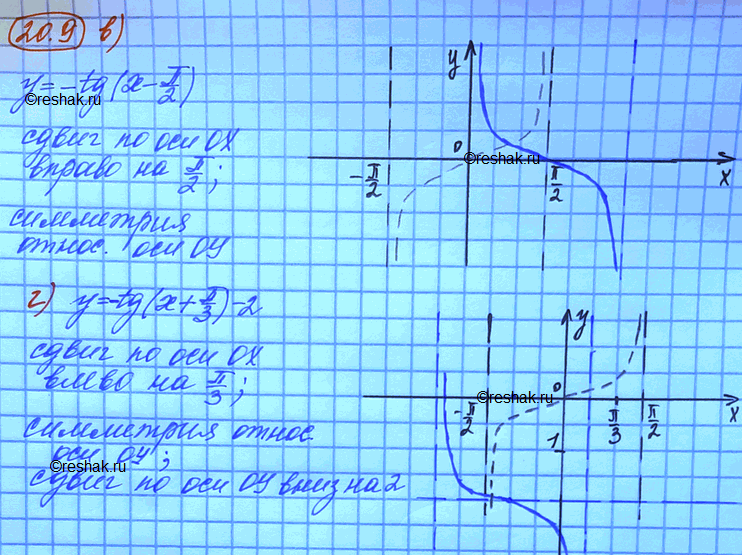 20.9 в)
y=-tg(x-π/2)
©reshak.ru
сдвиг по оси OX
вправо на π/2;
симметрия
относ. оси OY
©reshak.ru
y
0
©reshak.ru
-π/2
π/2
x
г) y=-tg(x+π/3)-2
сдвиг по оси OX
влево на π/3;
симметрия относ
оси OY;
©reshak.ru
сдвиг по оси OY вниз на 2
y
0
©reshak.ru
-π/2
π/3
π/2
x
1